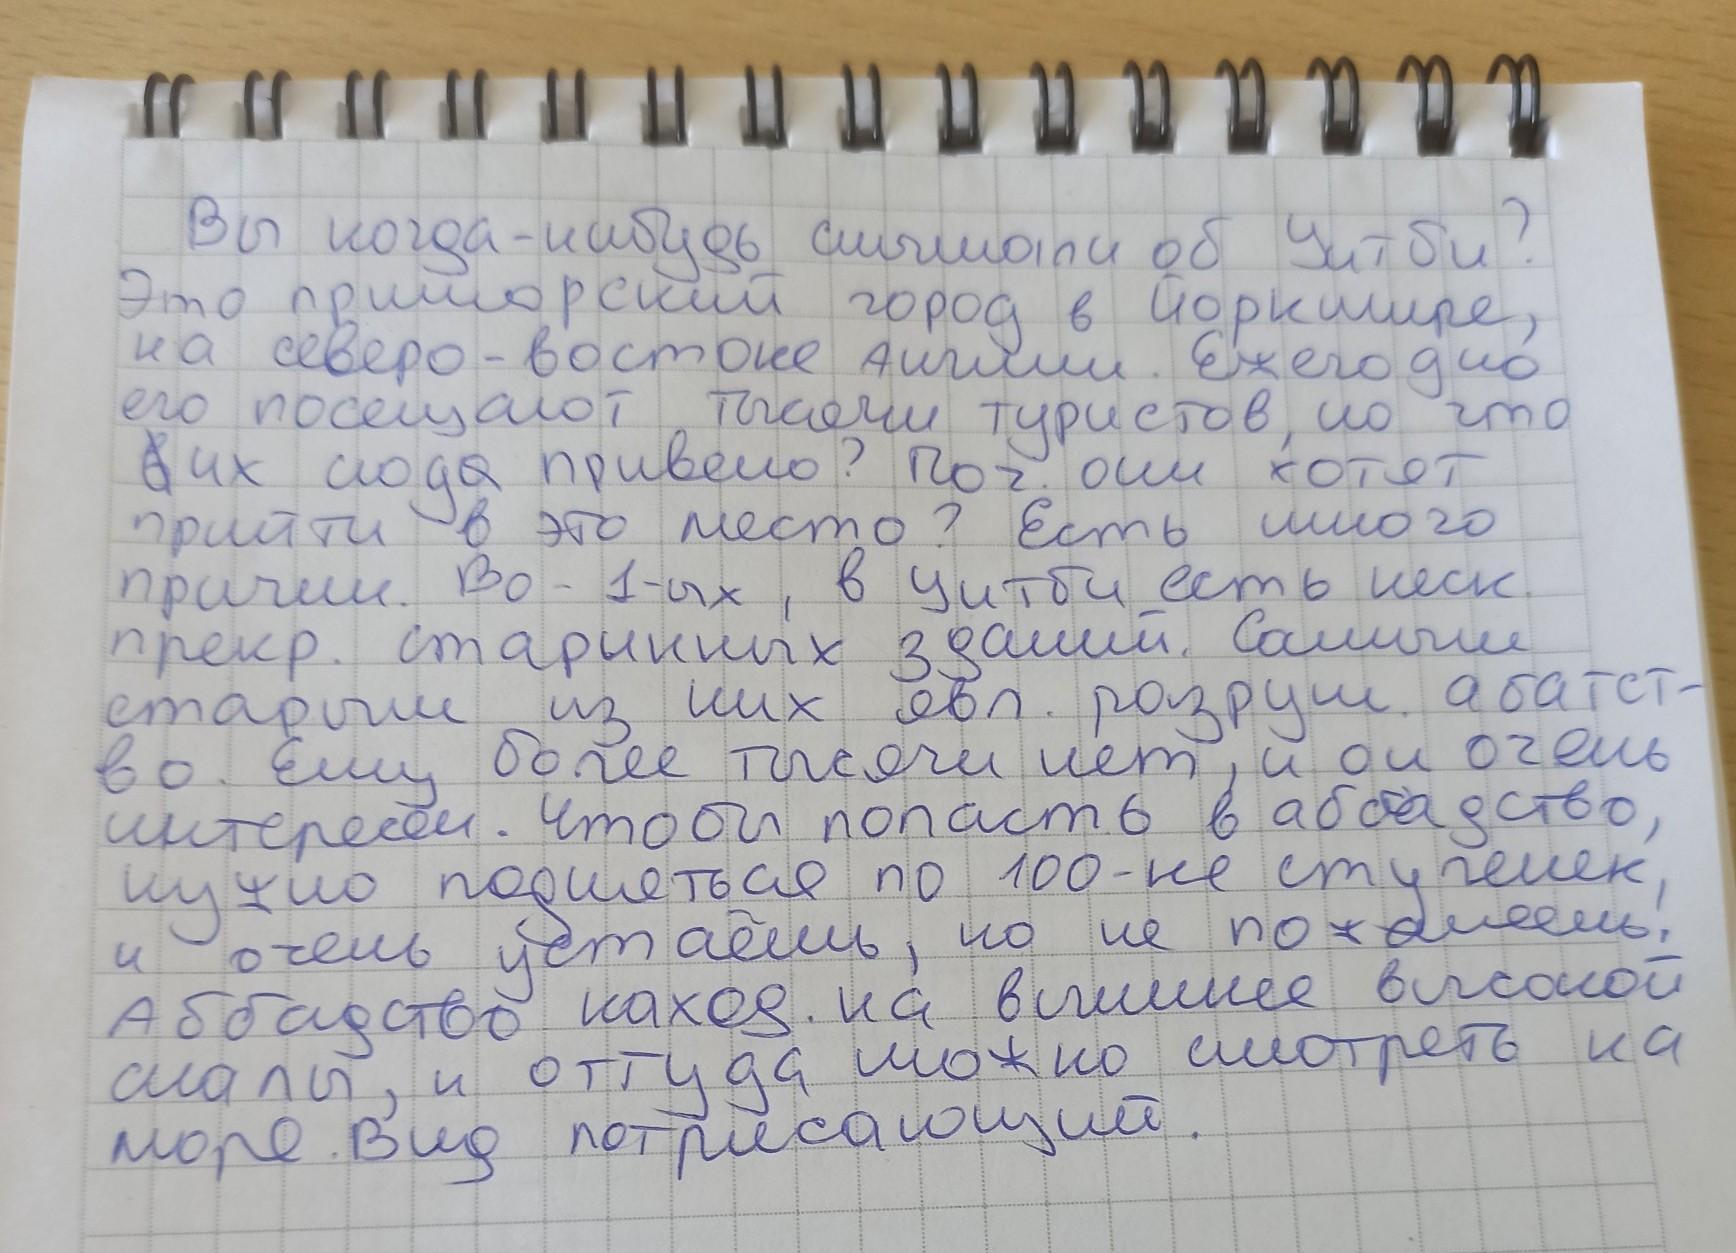 Вы когда-нибудь слышали об Уитби?
Это приморский город в Йоркшире,
на северо-востоке Англии. Ежегодно
его посещают тысячи туристов, но что
их сюда привело? Поч. они хотят
прийти в это место? Есть много
причин. Во-1-ых, в Уитби есть неск.
прекр. старинных зданий. Самым
старым из них явл. разруш. абатст-
во. Ему более тысячи лет, и он очень
интересен. Чтобы попасть в аббадство,
нужно подняться по 100-не ступенек,
и очень устаёшь, но не пожалеешь!
Аббадство наход. на вышине высокой
скалы, и оттуда можно смотреть на
море. Вид потрясающий.